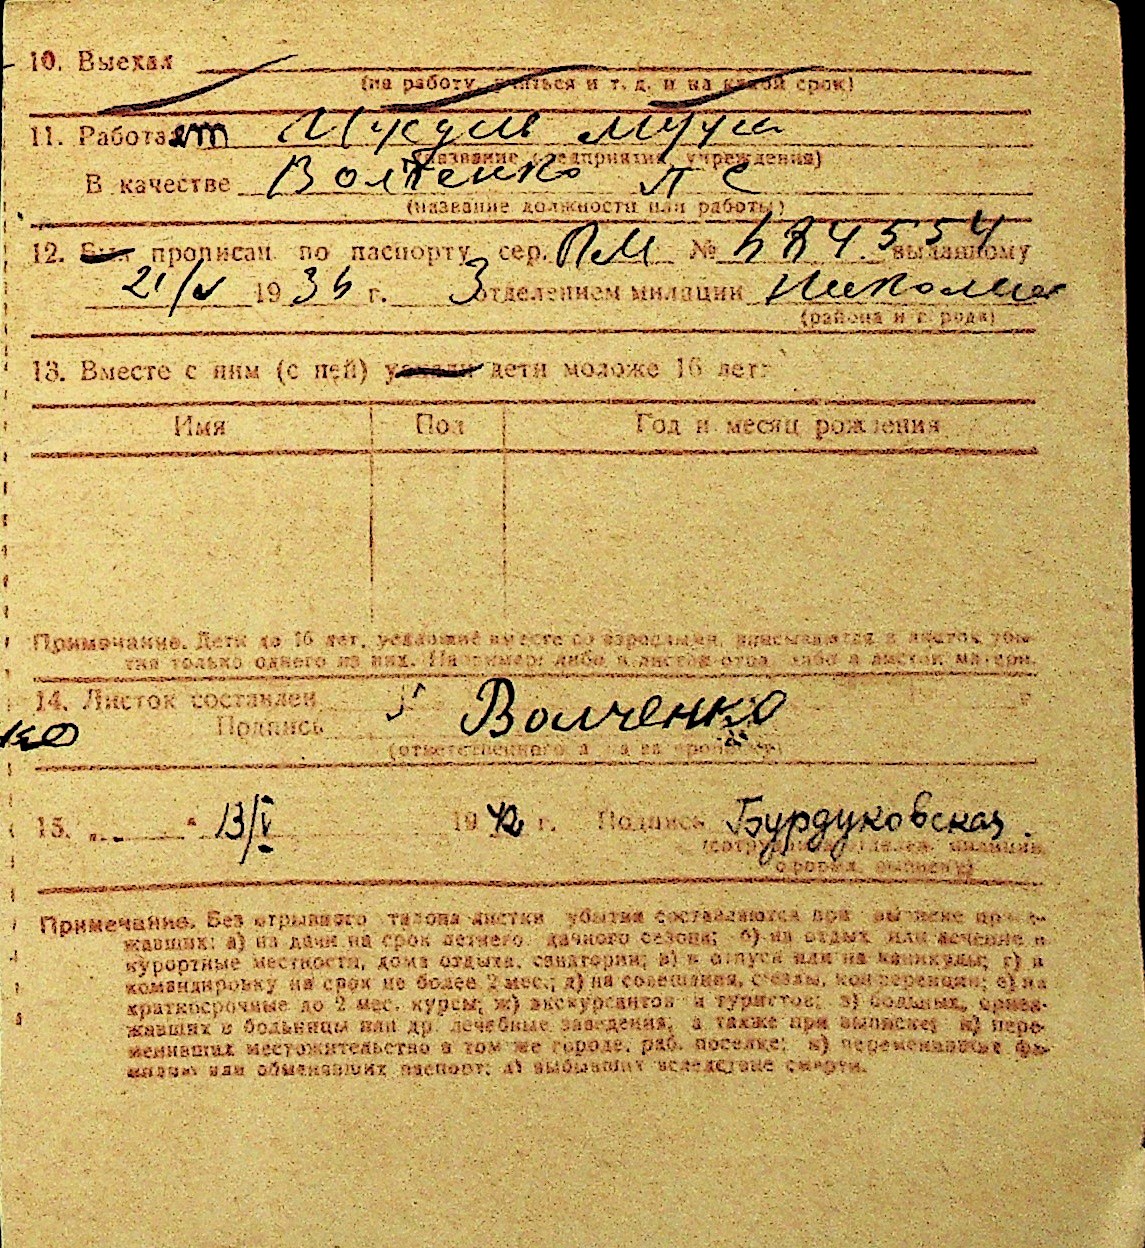 10. Выехал
(на работу, учиться и т. д. и на какой срок)
11. Работает Иждив мужа
(название предприятия, учреждения)
В качестве Волченко П С
(название должности или работы)
12. Был прописан по паспорту сер. ПМ № выданному
21/V 1936 г. 3 отделением милиции
(района и города)
13. Вместе с ним (с ней) уехали дети моложе 16 лет:
Имя Пол Год и месяц рождения
Примечание. Дети до 16 лет, уехавшие вместе со взрослыми, вписываются в листок убы-
тия только одного из них. Например: либо в листок отца, либо в листок матери.
14. Листок составлен г
ко Подпись Волченко
(ответственного за прописку)
15. „ “ 13/V 1942 г. Подпись Бурдуковская.
(сотрудника отделен. милиции,
оформл. выписку)
Примечание. Без отрывного талона листки убытия составляются при выписке прожи-
вавших: а) на дачи на срок летнего дачного сезона; б) на отдых или лечение в
курортные местности, дома отдыха, санатории; в) в отпуск или на каникулы; г) в
командировку на срок не более 2 мес.; д) на совещания, съезды, конференции; е) на
краткосрочные до 2 мес. курсы; ж) экскурсантов и туристов; з) больных,
в больницы или др. лечебные заведения, а также при выписке; и) пере-
менивших местожительство в том же городе, раб. поселке; к) переменивших фа-
милию или обменявших паспорт; л) выбывших вследствие смерти.